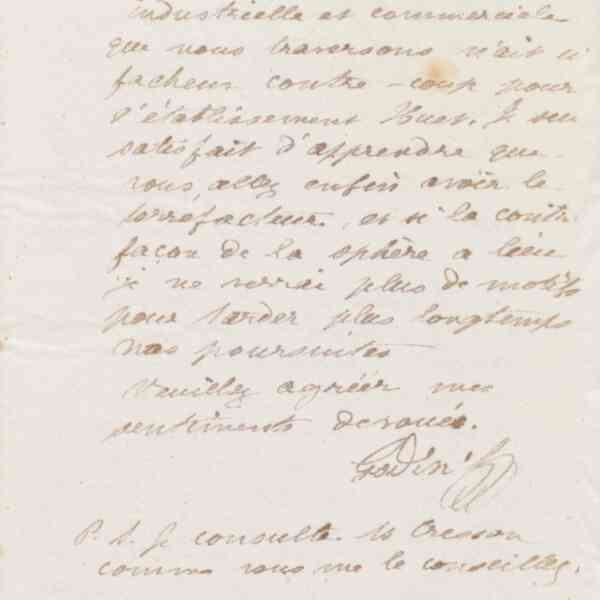 industrielle et commerciale
que nous traversons n'ait
facheux contre-coup pour
l'établissement Huet. Je suis
satisfait d'apprendre que
vous allez enfin avoir le
torréfacteur, et si la contre
façon de la sphère a lieu
je ne verrai plus de motifs
pour tarder plus longtemps
nos poursuites
Veuillez agréer mes
sentiments dévoués.
Godin
P. S. Je consulte Mr Cresson
comme vous me le conseillez.